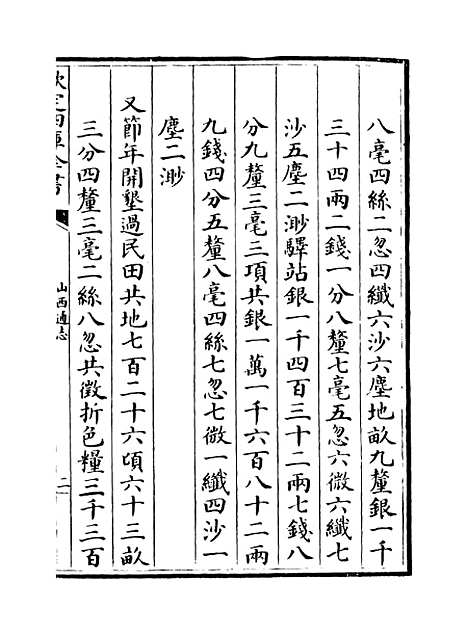 八毫四絲二忽四纖六沙六塵地畝九釐銀一千
三十四兩二錢一分八釐七毫五忽六微六纖七
沙五塵二渺驛站銀一千四百三十二兩七錢八
分九釐三毫三項共銀一萬一千六百八十二兩
九錢四分五釐八毫四絲七忽七微一纖四沙一
塵二渺
又節年開墾過民田共地七百二十六頃六十三畝
三分四釐三毫二絲八忽共徵折色糧三千三百
欽定四庫全書
山西通志
二